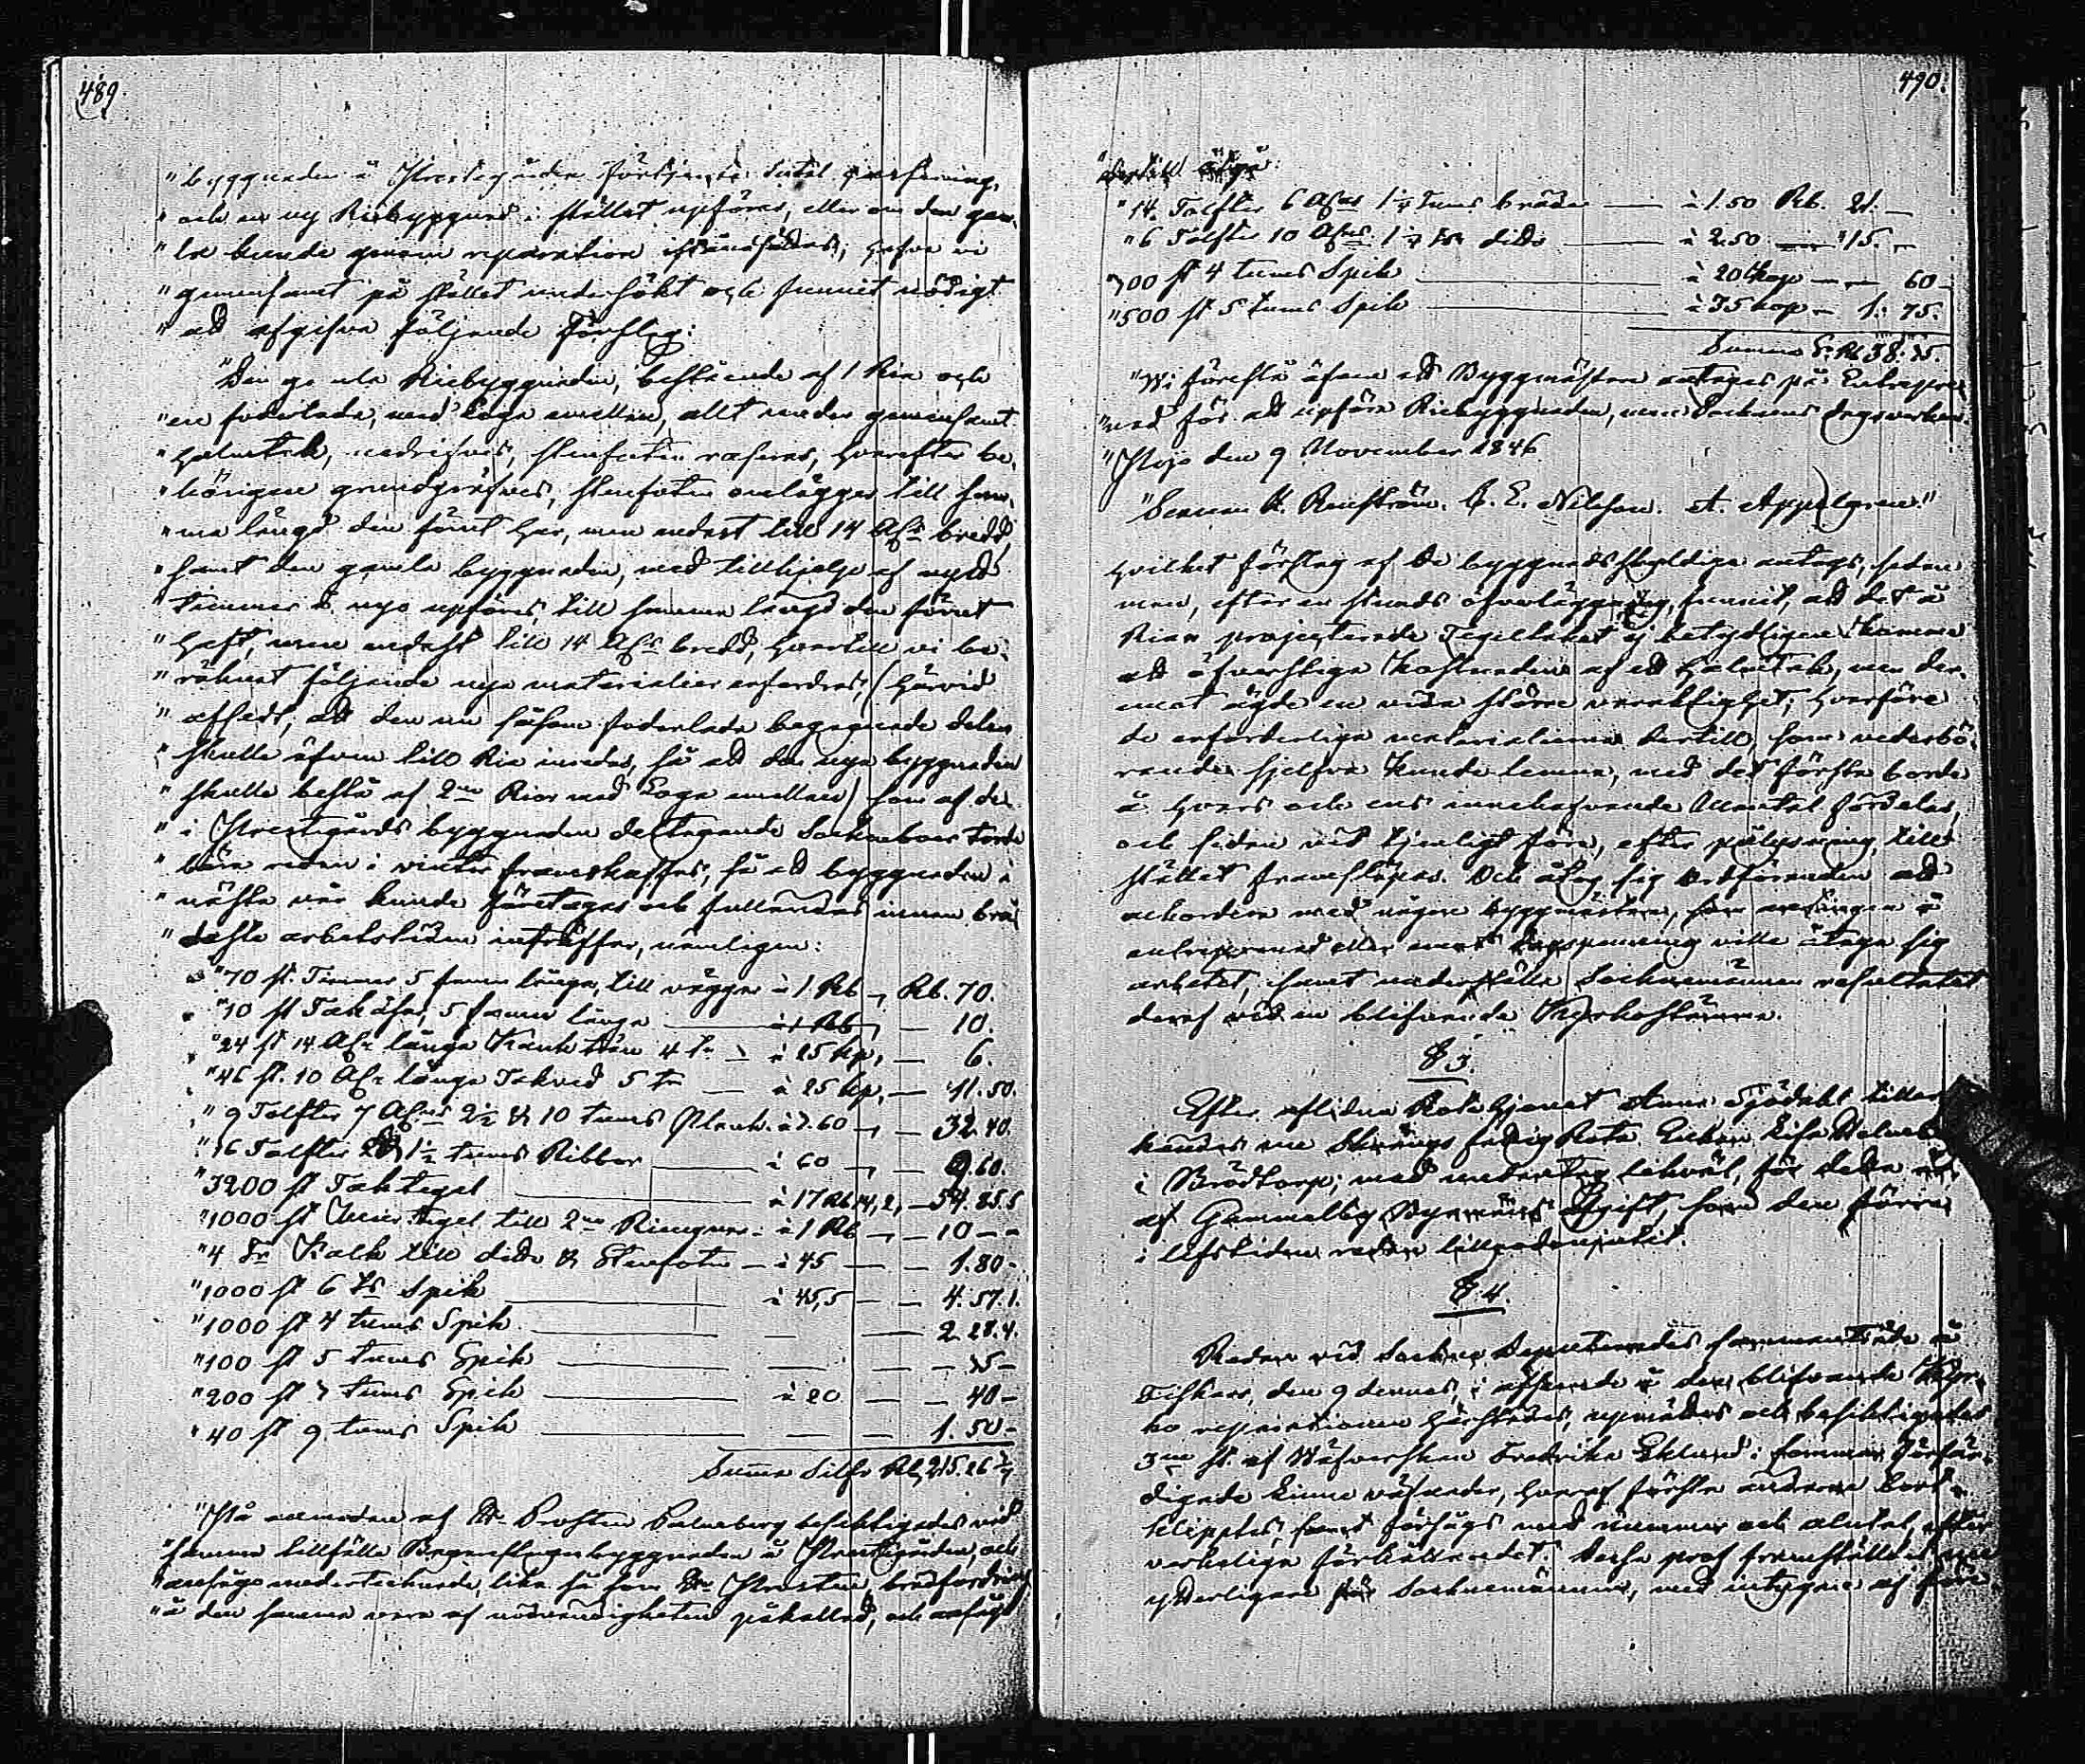 489
"byggnaden å Prestegården förtjente total qvasering,
"och en ny Riebyggnad i stället uppföras, eller om den gam-
"la kunde genom reparation iståndsättas; hafva vi
"gemensamt på stället undersökt och funnit nödigt
"att afgifva följande Förslag:
"Den gamla Riebyggnaden, bestående af 1 Ria och
"en foderlada, med Loge emellan, allt under gemensamt
"halmtak, nedrifves, stenfoten raseras, hvarefter be-
"hörigen grundgräfves, stenfoten omlägges till sam-
"ma längd den förut har, men endast till 14 Alnr bredd,
"samt den gamla byggnaden, med tillhjelp af nytt
"timmer å nyo uppföres, till samma längd den förut
"haft, men endast till 14 Alnr bredd, hvartill vi be-
"räknat följande nya materialier erfordras, (härvid
"afsedt, att den nu såsom foderlada begagnade delen
"skulle äfven till Ria inredas, så att den nya byggnaden
"skulle bestå af 2ne Rior med Loge emellan) som af de
"i Prestegårds byggnaden deltagande Sockneboer torde
"böra redan i vinter framskaffas, så att byggnaden i
"nästa vår kunde företagas och fullendas innan brå-
"daste arbetstiden inträffar, nemligen:
"70 st. Timmer 5 famn långa, till väggar à 1 Rb — Rb. 70.
"10 st Takåsar, 5 famn långa — à 1 Rb — 10.
"24 st 14 Alnr långa Kankträn 4 tm — à 25 kp, — 6.
"46 st. 10 Alnr långa Takved 5 tm — à 25 kp, — 11.50.
"9 Tolfter 7 Alnrs 2½ & 10 tums Plank à 3.60 — 32.40.
"16 Tolfter 1½ tums Ribbor — à 60 — 9.60.
"3200 st Taktegel — à 17 Rb 14,2, — 54.85.5
"1000 st Murtegel till 2ne Rieugnar à 1 Rb — 10 — —
"4 Tr Kalk till dito & Stenfoten — à 45 — 1.80-
"1000 st 6 ts Spik — à 45,5 — 4.57.1.
"1000 st 4 tums Spik — 2.28.4.
"100 st 5 tums Spik — 35-
"200 st 3 tums Spik — à 20 — 40-
"40 st 9 tums Spik — 1.50-
Summa Silfr Rb 215.26
"På anmodan af Hr Prosten Palmberg besiktigades vid
"samma tillfälle byggnaden å Prestegården, och
"ansågo undertecknade, lika så som Hr Prosten, brädfordring
"å den samma vara af nödvändigheten påkallad, och ansågs
490.
"dertill åtgå:
"14. Tolfter 6 Alnrs 1¼ tums bräder — à 1.50 Rb. 21. —
"6 Tolfter 10 Alnrs 1¼ ts dito — à 2.50 — "15. —
"300 st 4 tums Spik — à 20 kop — 60-
"500 st 5 tums Spik — à 35 kop — 1. 75.
Summa S. Rb 38.35.
"Vi föreslå äfven att Byggmästare antages på Entrepre-
"nad för att upföra Riebyggnaden, men Socknens dagsverken.
"Pojo den 9 November 1846
"Simon A. Renström. C. E. Nilsson. A. Appelgren."
hvilket förslag af de byggnadsskyldiga antogs, sedan
man, efter en stunds öfverläggning, funnit, att det å
Rian projecterade Tegeltaket ej betydligen komme
att öfverstiga kostnaden af ett Halmtak, men der-
emot ägde en vida större varaktighet; hvarföre
de erforderliga materialierna dertill, som vederbö-
rande sjelfva kunde lemna, med det första borde
å hvars och ens innehafvande Mantal fördelas,
och sedan vid tjenligt före, efter pålysning, till
stället framsläpas. Och åtog sig Ordföranden att
ackordera med någon byggmästare, som antingen å
entreprenad eller emot dagspenning ville åtaga sig
arbetet, samt underställa Sockenemännen resultatet
deraf vid en blifvande Kyrkostämma.
§ 3.
Efter aflidna Rotehjonet Anna Sjödahl tiller-
kändes nu Skrings fattig Rota Enkan Lisa Malmberg
i Brödtorp; med undantag likväl, för detta år,
af Gammelby Byamäns afgift, som den förra
i lifstiden redan tillgodonjutit.
§ 4.
Redan vid Socken Deputerades sammanträde å
Fiskars, den 9 dennes, i afseende å den blifvande Kyr-
ko reparationen härstädes, upmättes och besiktigades
3ne st. af Wäfverskan Fredrika Eklund i sommar förfär-
digade Linne väfnader, hvaraf första ändarne bort-
klipptes, samt försågs med nummer och alntal, efter
verkeliga förhållandet. Dessa prof framställdes nu
ytterligare för Socknemännen, med intygan af